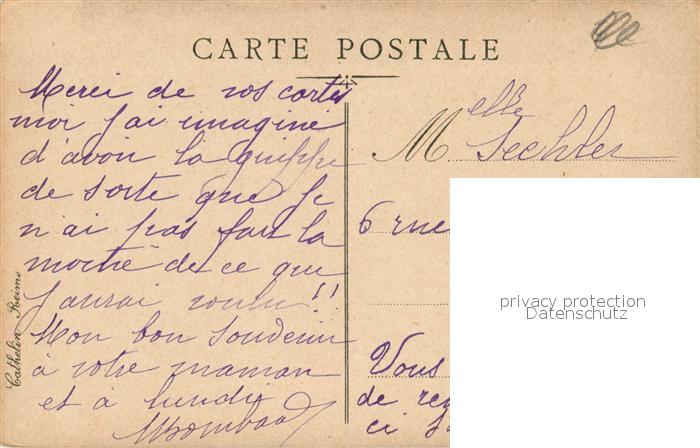 CARTE POSTALE
Merci de vos cartes
moi j'ai imaginé
d'avoir la grippe
de sorte que je
n'ai pas fait la
moitié de ce que
j'aurai voulu!!
Mon bon souvenir
à votre maman
et à lundi
Melle Sechler
6 rue
Vous
de reg
ci
Cathelin Reims
privacy protection
Datenschutz